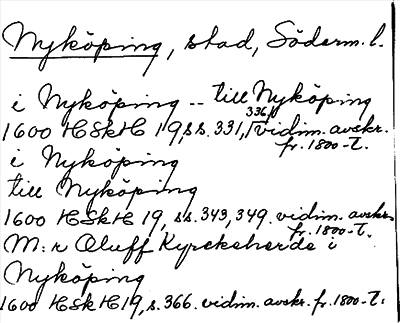 Nyköping, stad, Söderm. l.
i Nyköping -- till Nyköping
1600 HSkH 19, ss. 331, 336, vidim. avskr. fr. 1800-t.
i Nyköping
till Nyköping
1600 HSkH 19, ss. 343, 349. vidim. avskr. fr. 1800-t.
M:r Oluff Kyrckeherde i
Nyköping
1600 HSkH 19, s. 366. vidim. avskr. fr. 1800-t.